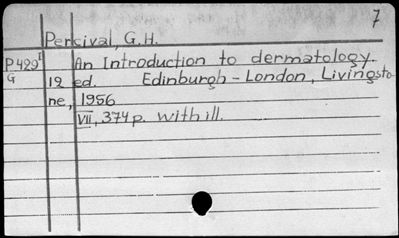 7
Percival, G.H.
P429I An Introduction to dermatology.
G 12 ed. Edinburgh - London, Livingsto
ne, 1956
VII, 374 p. with ill.